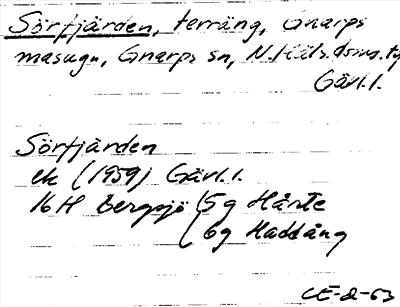 Sörfjärden, terräng, Gnarps
masugn, Gnarps sn, N. Häls. doms. t
Gävl. l.
Sörfjärden
ek (1959) Gävl. l.
16H Bergsjö (5g Hårte
(6g Haddäng
CE-2-63